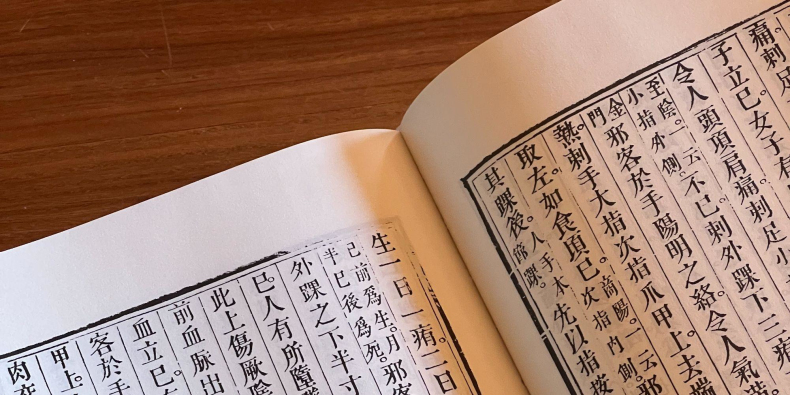 痛。刺足
子立已女子有
令人頭項肩痛刺足小
至陰。一云
小指外側。不已刺外踝下三痏
金門邪客於手陽明之絡令人氣滿
熱。刺手大指次指爪甲上去端
取左。如食頃已。商陽。一云
次指內側。邪
其踝後。人手本先以指按
生一日一痏二日
己前爲生。月
半已後爲死。邪客
外踝之下半寸
已人有所墮墜
此上傷厥陰
前血脈出
血立已。
客於手
甲上。
肉